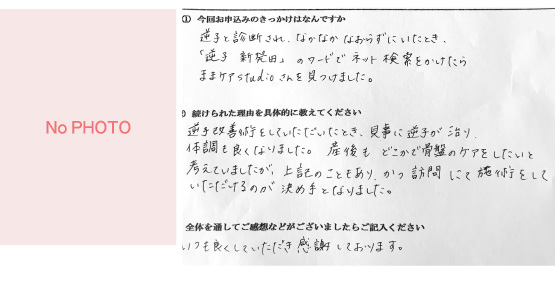 No PHOTO
① 今回お申込みのきっかけはなんですか
逆子と診断され、なかなかなおらずにいたとき、
「逆子 新発田」のワードでネット検索をかけたら
ままケアstudioさんを見つけました。
続けられた理由を具体的に教えてください
逆子改善術をしていただいたとき、見事に逆子が治り、
体調も良くなりました。産後もどこかで骨盤のケアをしたいと
考えていましたが、上記のこともあり、かつ訪問にて施術をして
いただけるのが決め手となりました。
全体を通してご感想などがございましたらご記入ください
いつも良くしていただき感謝しております。